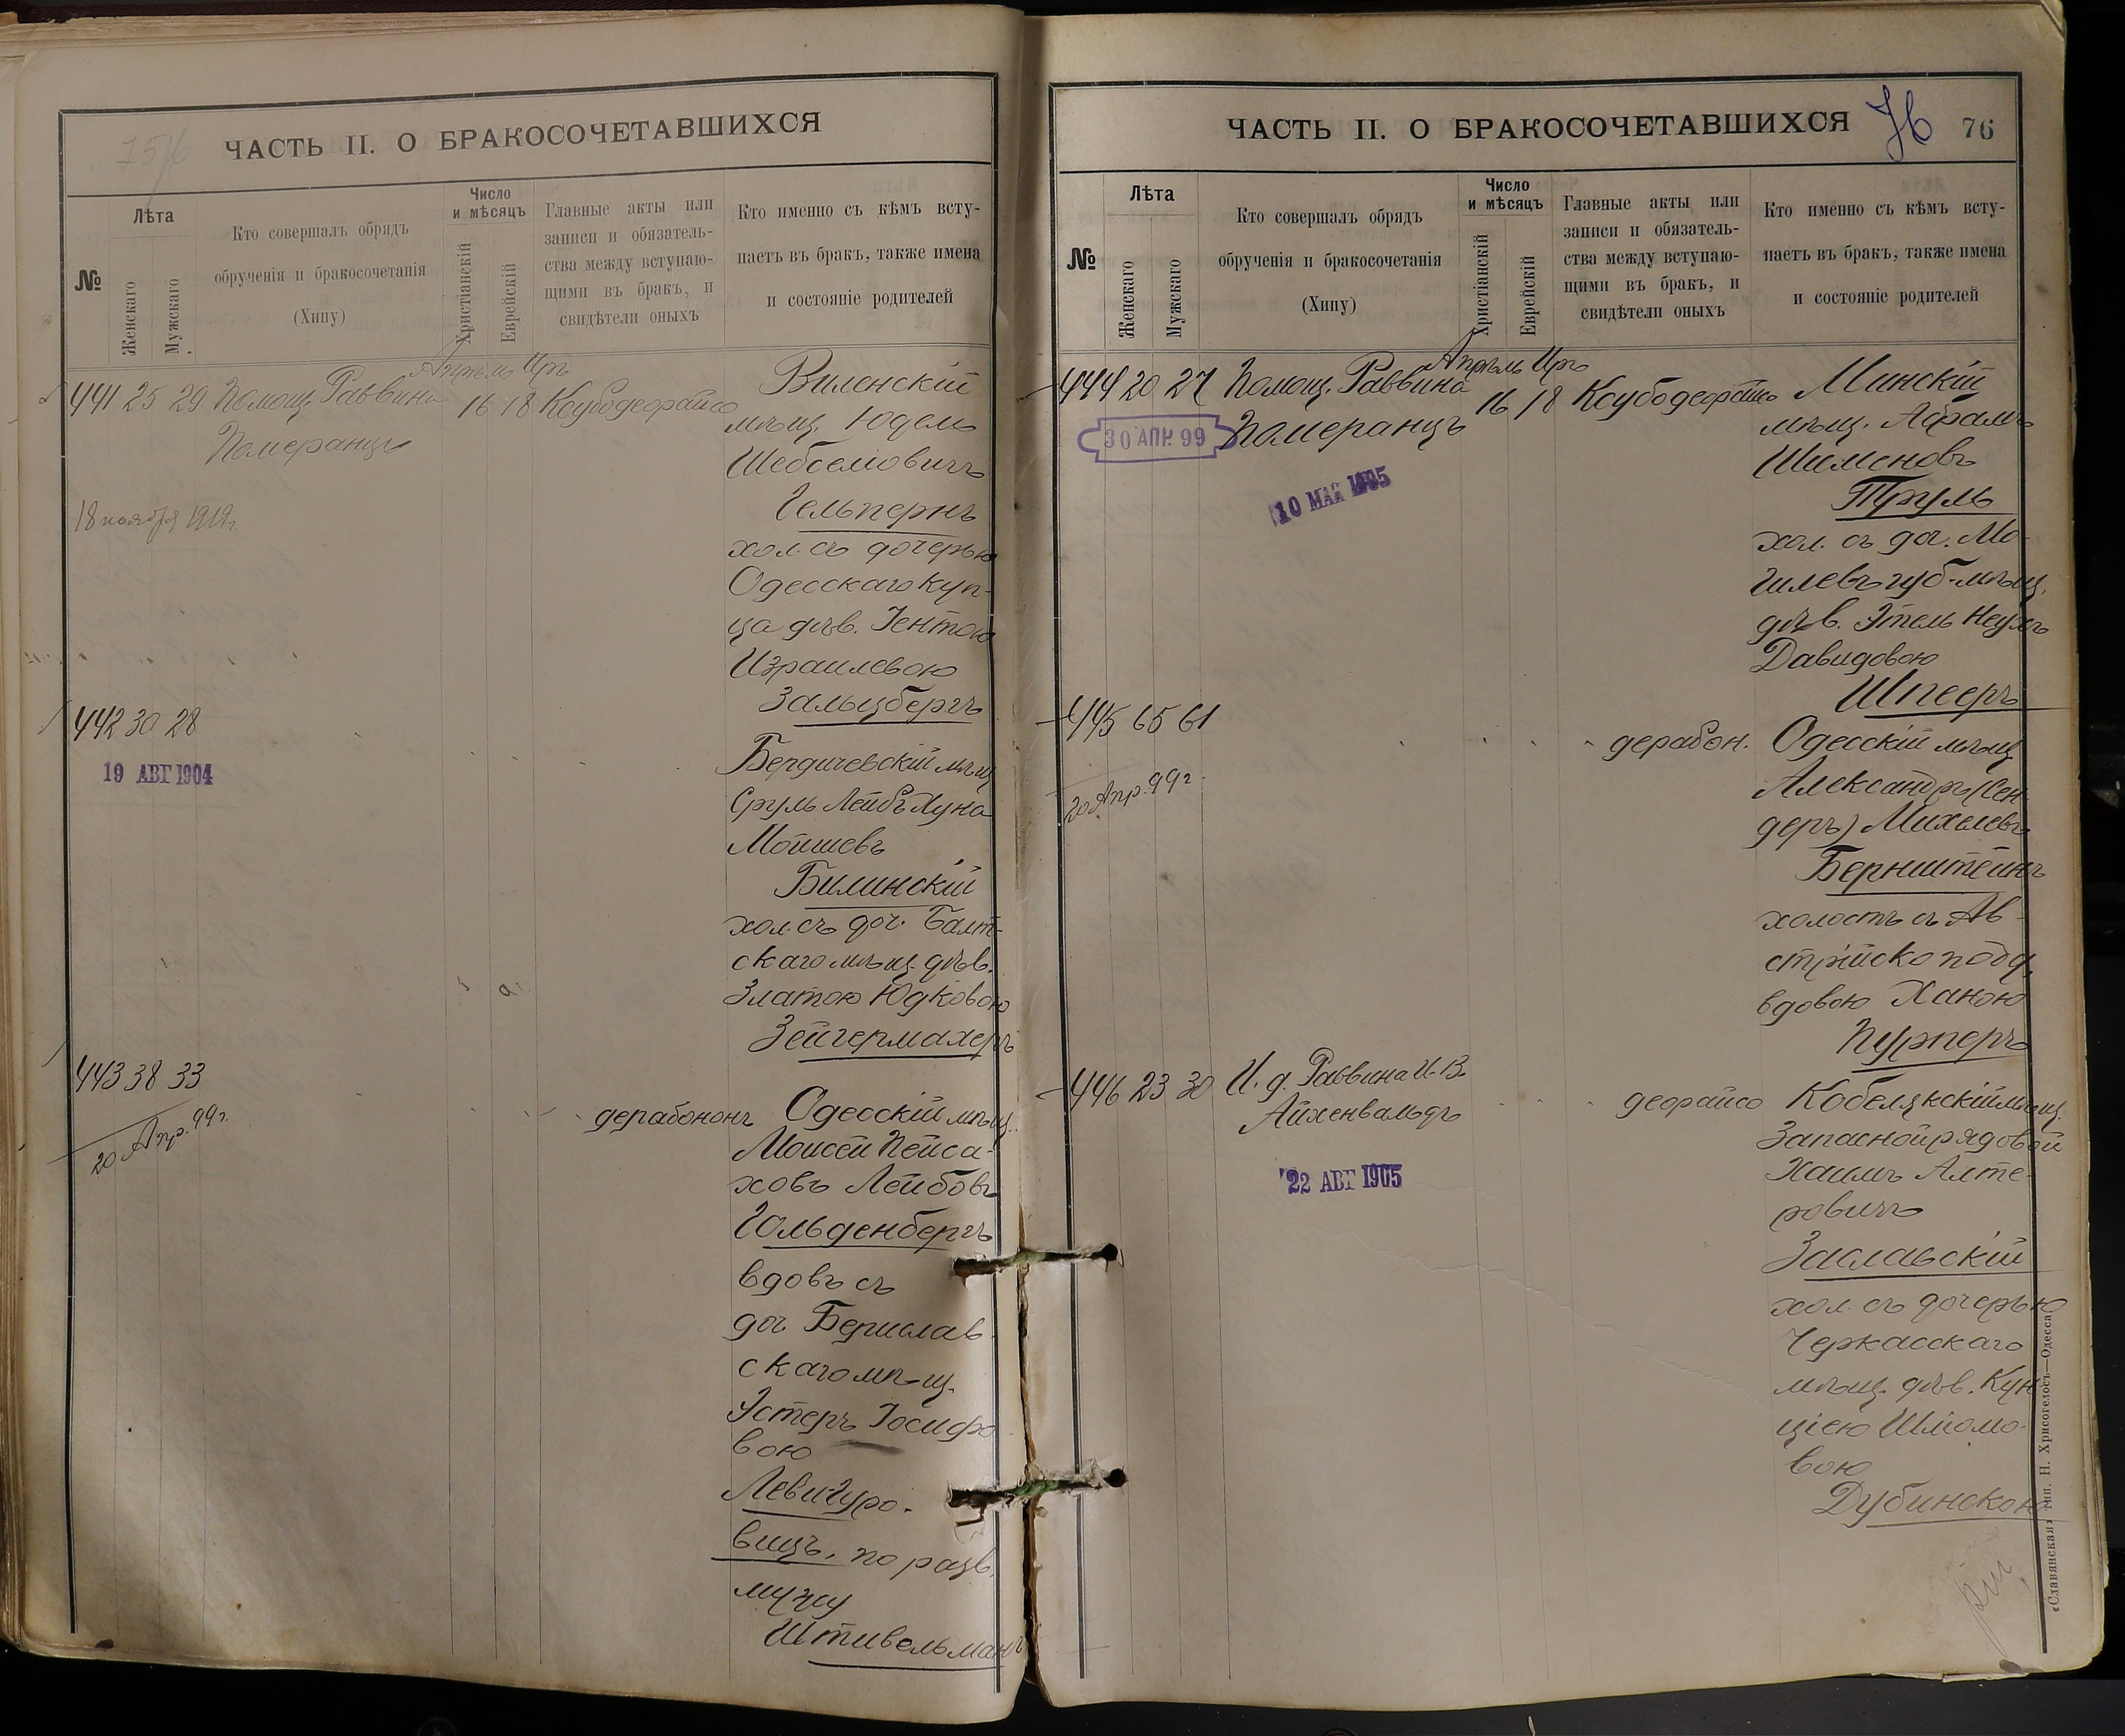 ЧАСТЬ II. О БРАКОСОЧЕТАВШИХСЯ
№
Лѣта
Женскаго
Мужскаго
Кто совершалъ обрядъ
обрученія и бракосочетанія
(Хипу)
Число
и мѣсяцъ
Христіанскій
Еврейскій
Главные акты или
записи и обязатель-
ства между вступаю-
щими въ бракъ, и
свидѣтели оныхъ
Кто именно съ кѣмъ всту-
паетъ въ бракъ, также имена
и состояніе родителей
Апрѣль Иръ
441 25 29 Помощ. Раввина 16 18 Ксубодеорайсо
Померанцъ
18 ноября 1919г.
Виленскій
мѣщ. Юдель
Шебселіовичъ
Гельпернъ
хол. съ дочерью
Одесскаго куп-
ца дѣв. Іентою
Израилевою
Зальцбергъ
442 30 28
19 АВГ 1904
Бердичевскій мѣщ
Сруль Лейбъ Хуна
Мошшевъ
Билинскій
хол. съ доч. Балт-
скаго мѣщ. дѣв.
Златою Юдковою
Зейгермахеръ
443 38 33
20 Апр. 99г.
дерабононъ
Одесскій мѣщ.
Моисей Пейса-
ховъ Лейбовъ
Гольденбергъ
вдовъ съ
доч Берислав
скаго мѣщ.
Эстеръ Іосифо-
вою
Левигуро-
вицъ, по разв.
мужу
Штивельманъ
ЧАСТЬ II. О БРАКОСОЧЕТАВШИХСЯ
76 76
№
Лѣта
Женскаго
Мужскаго
Кто совершалъ обрядъ
обрученія и бракосочетанія
(Хипу)
Число
и мѣсяцъ
Христіанскій
Еврейскій
Главные акты или
записи и обязатель-
ства между вступаю-
щими въ бракъ, и
свидѣтели оныхъ
Кто именно съ кѣмъ всту-
паетъ въ бракъ, также имена
и состояніе родителей
Апрѣль Иръ
444 20 27 Помощ. Раввина 16 18 Ксубодеорайсо
Померанцъ
30 АПР. 99
10 МАЙ 1905
Минскій
мѣщ. Абрамъ
Шименовъ
Труль
хол. съ доч. Мо-
гилевъ губ. мѣщ.
дѣв. Этель Неухъ
Давидовою
Шпееръ
445 65 61
20 Апр. 99г.
дерабон.
Одесскій мѣщ
Александръ (Сен
деръ) Михелевъ
Бернштейнъ
холостъ съ Ав-
стрійско подд.
вдовою Ханою
Пурперъ
446 23 30 И. д. Раввина И. В.
Айхенвальдъ
22 АВГ 1905
деорайсо
Кобелякскій мѣщ.
Запасной рядовой
Хаимъ Алте-
ровичъ
Заславскій
хол. съ дочерью
Черкасскаго
мѣщ. дѣв. Кун
ціею Шліомо-
вою
Дубинскою
«Славянская» тип. Н. Хрисогелосъ—Одесса